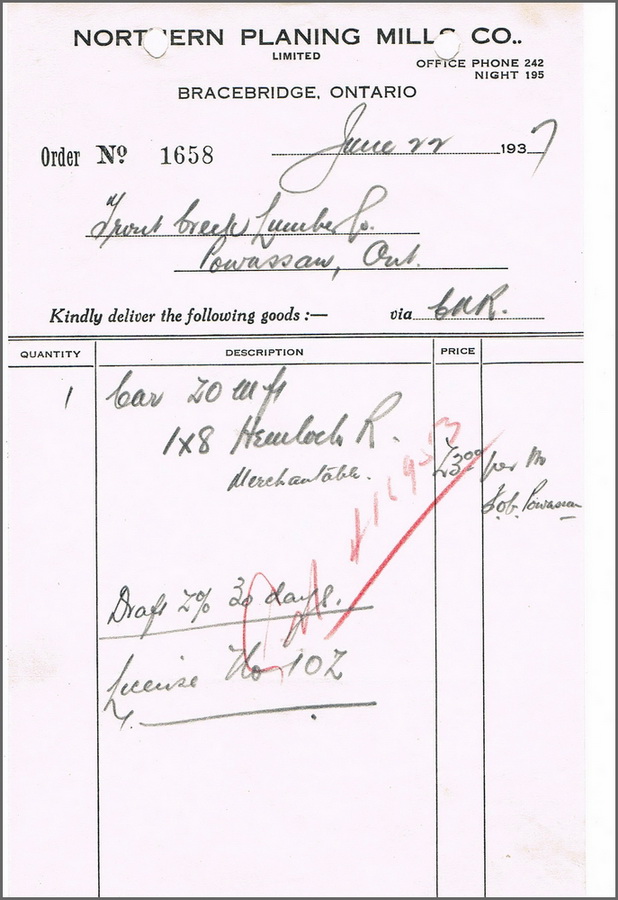 NORTHERN PLANING MILLS CO..
LIMITED
OFFICE PHONE 242
NIGHT 195
BRACEBRIDGE, ONTARIO
Order No 1658
June 22 1937
Trout Creek Lumber Co.
Powassan, Ont.
Kindly deliver the following goods :— via C N R.
QUANTITY DESCRIPTION PRICE
1 Car 20 m ft
1x8 Hemlock R.
Merchantable. 23.00 per M
F.o.b. Powassan
Draft 2% 30 days.
License No 102